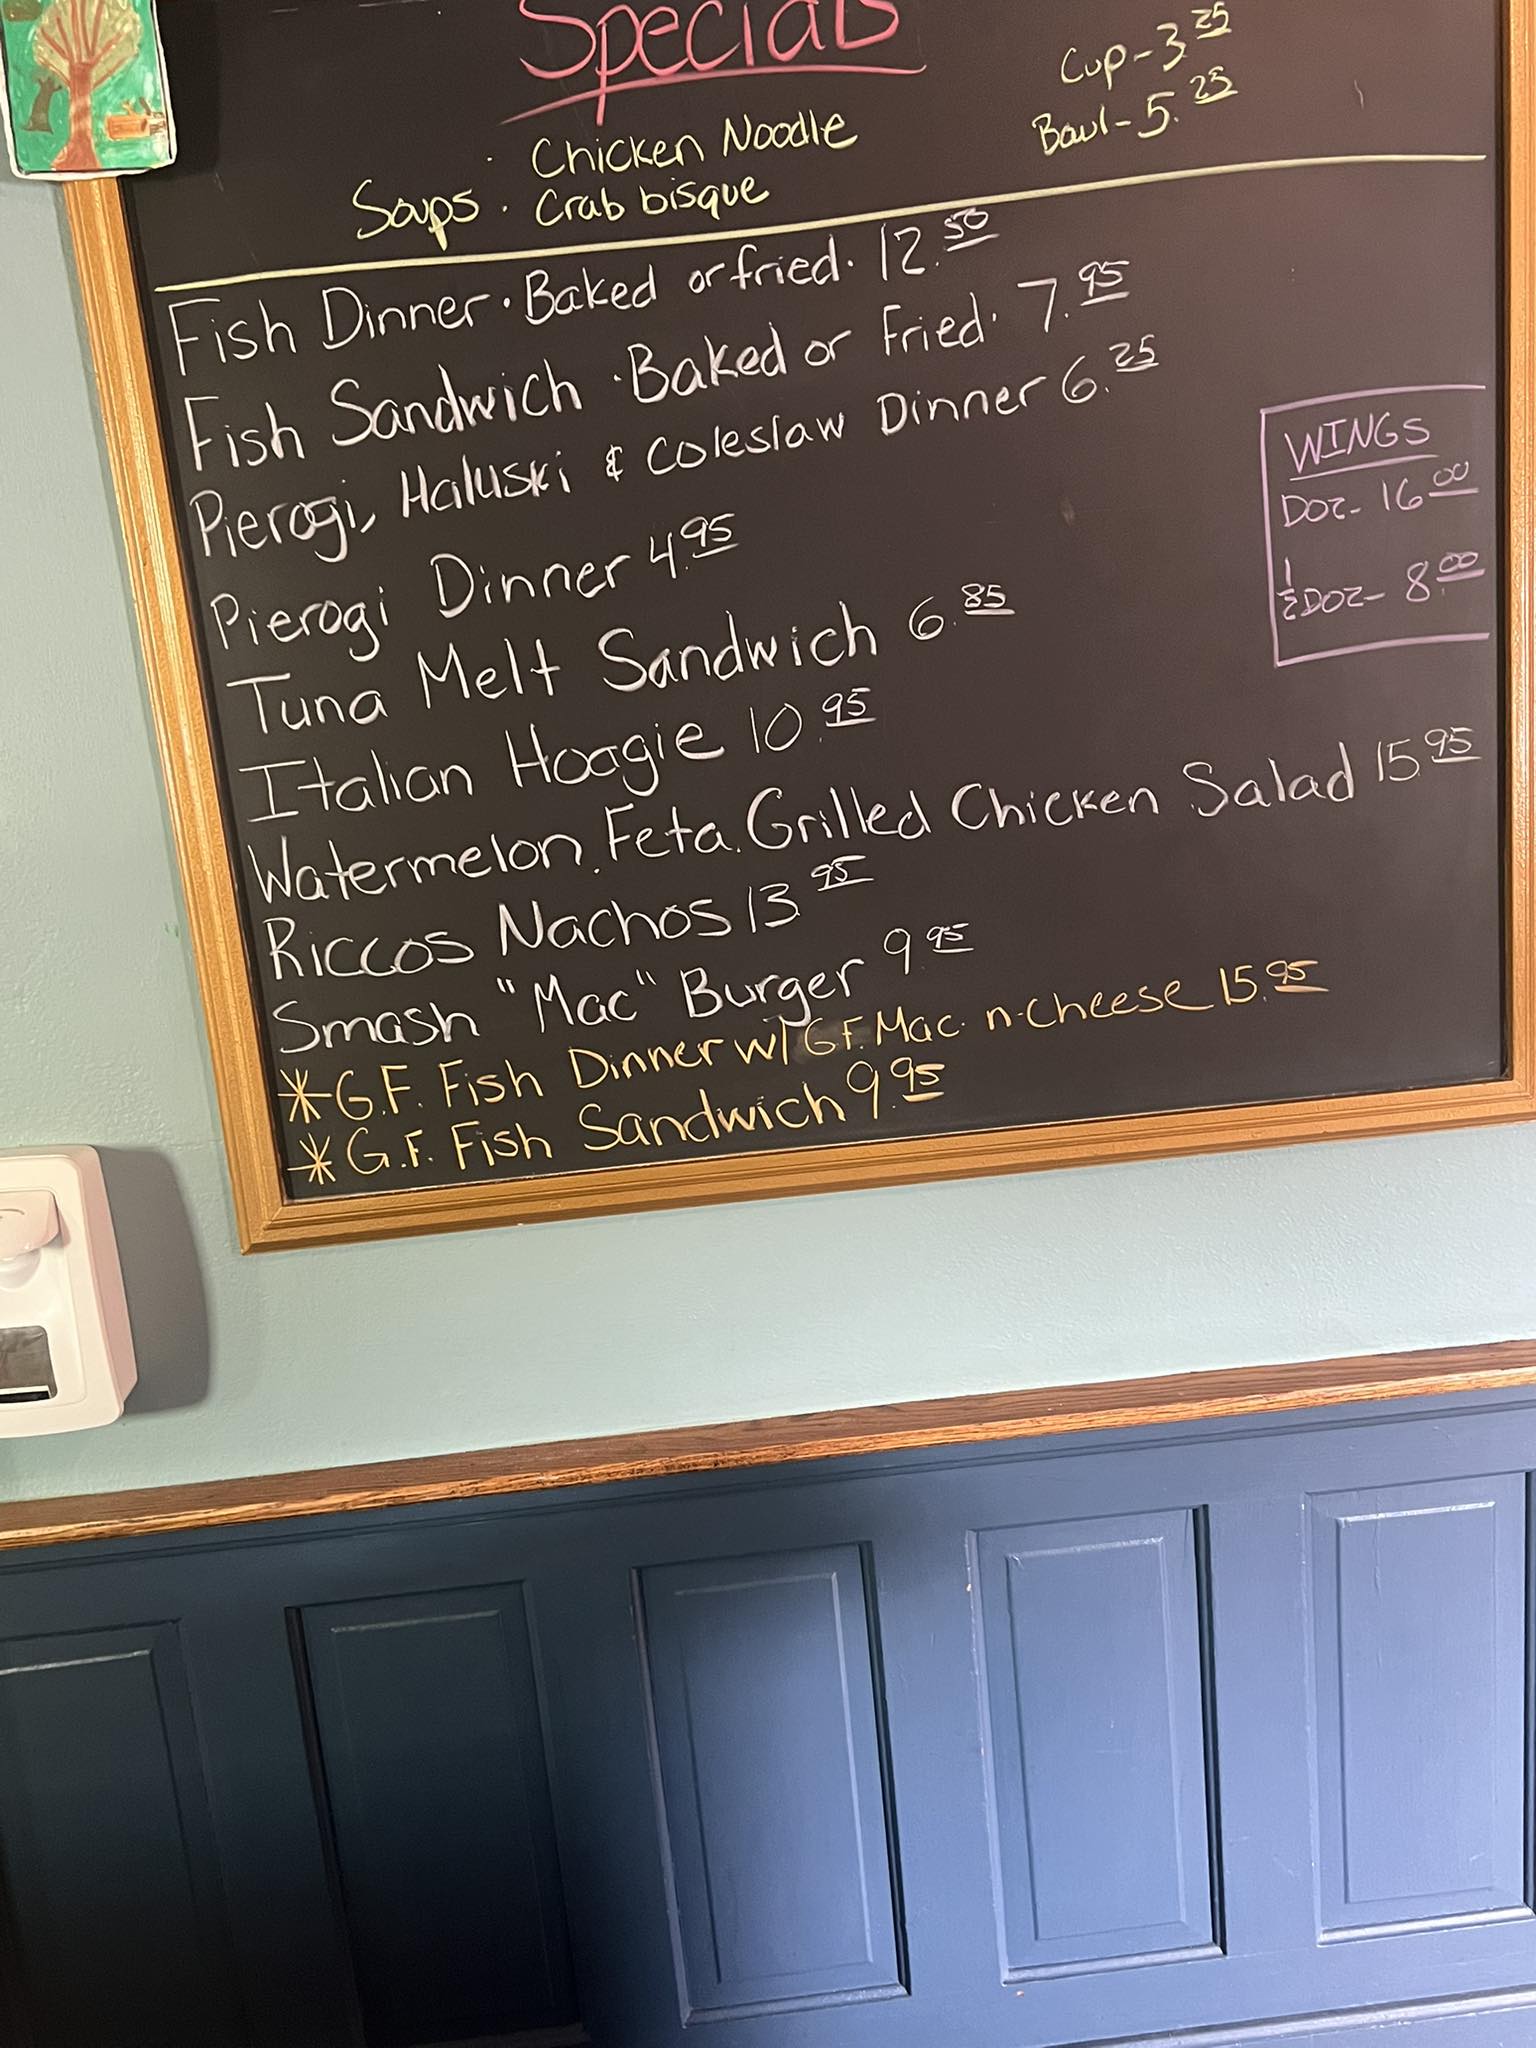 Specials
Cup-3.25
Bowl-5.25
· Chicken Noodle
Soups · Crab bisque
Fish Dinner · Baked or fried · 12.50
Fish Sandwich · Baked or Fried · 7.95
Pierogi, Haluski & Coleslaw Dinner 6.25
Pierogi Dinner 4.95
Tuna Melt Sandwich 6.85
Italian Hoagie 10.95
Watermelon, Feta, Grilled Chicken Salad 15.95
Riccos Nachos 13.95
Smash "Mac" Burger 9.95
*G.F. Fish Dinner w/ G.F. Mac-n-Cheese 15.95
*G.F. Fish Sandwich 9.95
WINGS
DOZ- 16.00
1/2 DOZ- 8.00